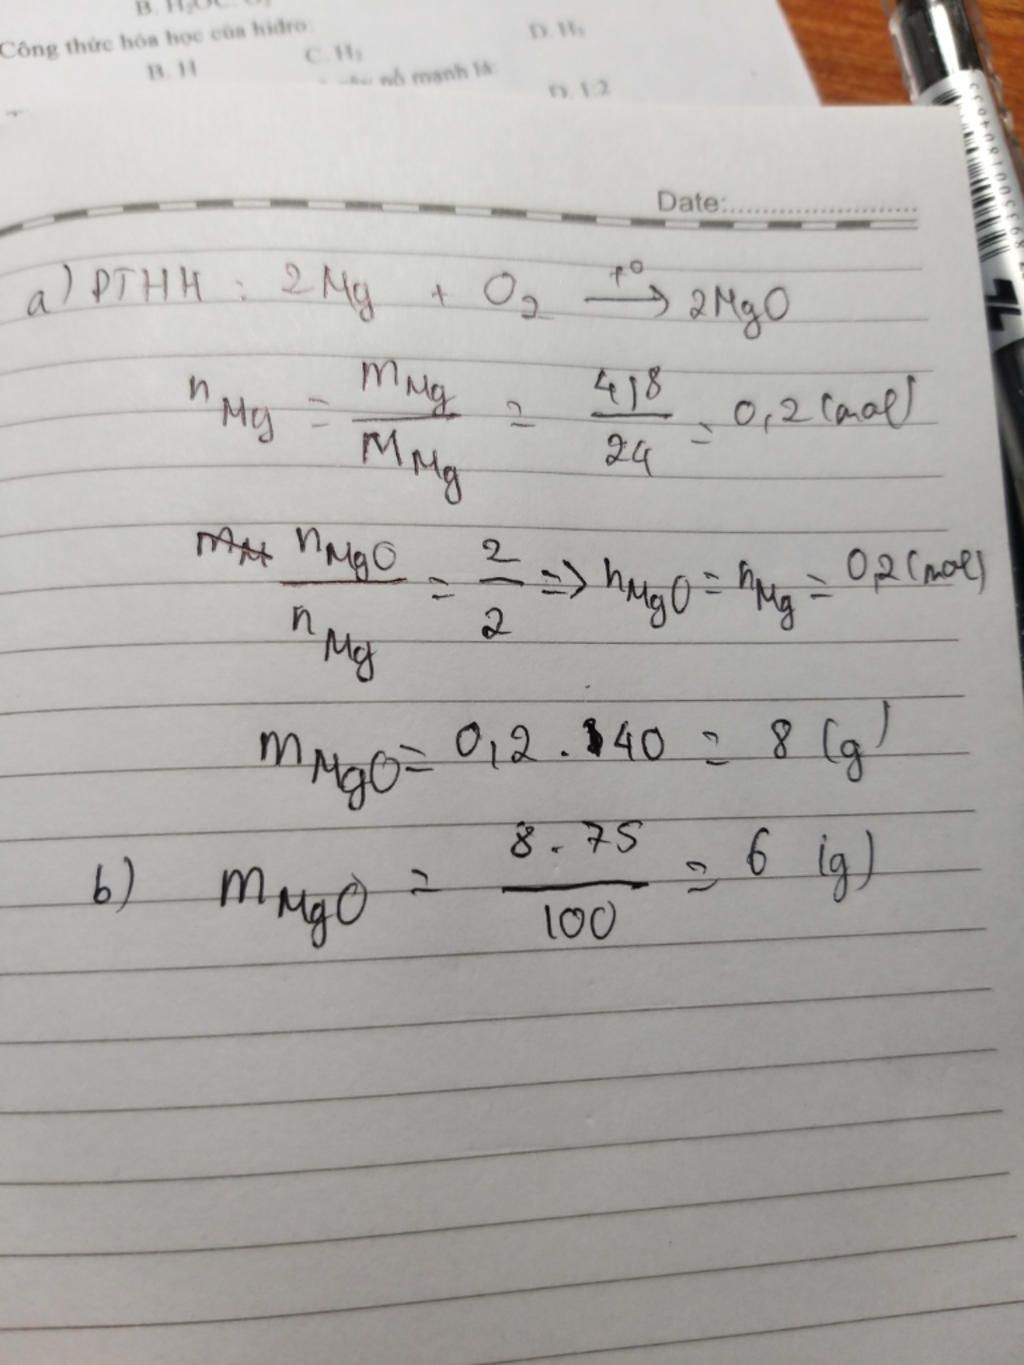 Công thức hóa học của hidro:
B. H
C. H₂
nổ mạnh là:
D. 1:2
Date:
a) PTHH: 2Mg + O₂ —t°→ 2MgO
n_Mg = m_Mg / M_Mg = 4,8 / 24 = 0,2 (mol)
n_MgO / n_Mg = 2 / 2 => n_MgO = n_Mg = 0,2 (mol)
m_MgO = 0,2 . 40 = 8 (g)
b) m_MgO = 8 . 75 / 100 = 6 (g)